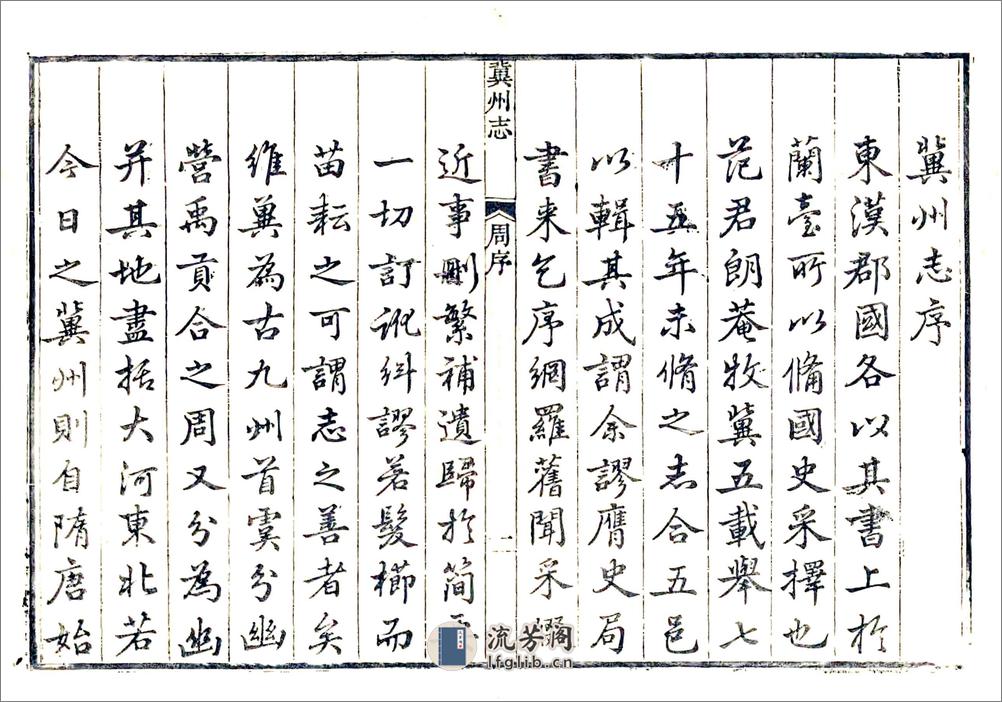 冀州志序
東漢郡國各以其書上於
蘭臺所以備國史采擇也
范君朗菴牧冀五載舉七
十五年未脩之志合五邑
以輯其成謂余謬膺史局
書来乞序網羅舊聞采
冀州志
周序
一
近事刪繁補遺歸於簡
一切訂訛糾謬若髮櫛而
苗耘之可謂志之善者矣
維冀為古九州首虞分幽
營禹貢合之周又分為幽
并其地盡括大河東北若
今日之冀州則自隋唐始
流芳閣
lfglib.cn